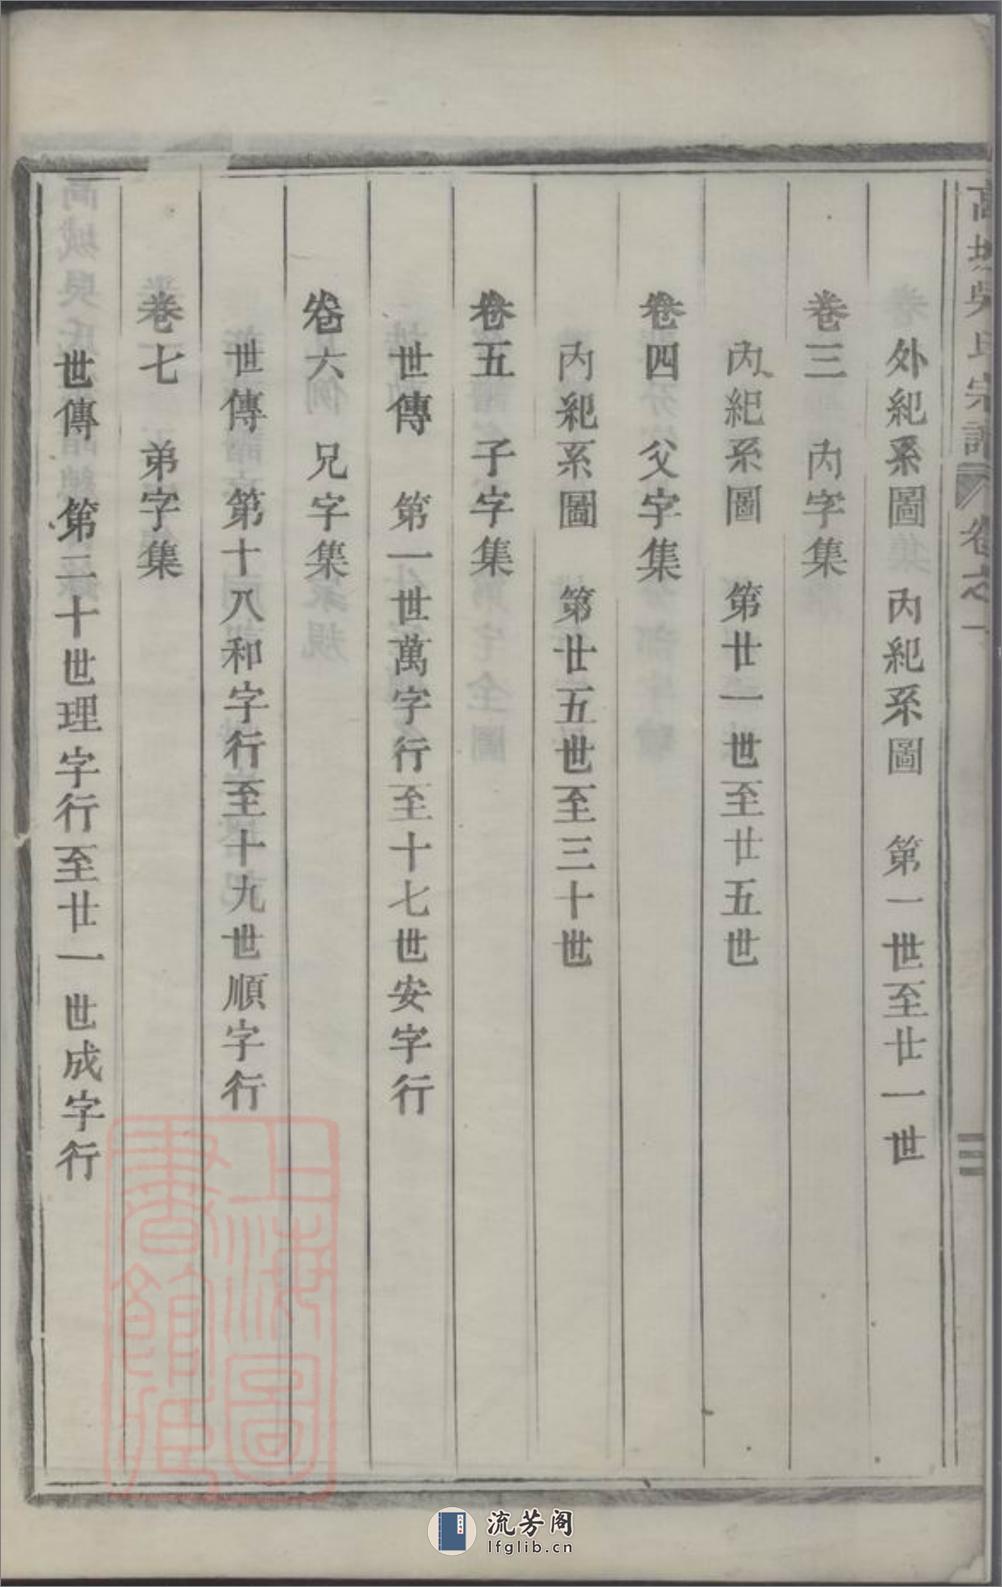 高城吳氏宗譜 卷之一 三
外紀系圖 內紀系圖 第一世至廿一世
卷三 內字集
內紀系圖 第廿一世至廿五世
卷四 父字集
內紀系圖 第廿五世至三十世
卷五 子字集
世傳 第一世萬字行至十七世安字行
卷六 兄字集
世傳 第十八和字行至十九世順字行
卷七 弟字集
世傳 第二十世理字行至廿一世成字行
上海圖書館藏
流芳阁
lfglib.cn